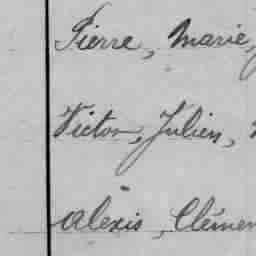 Pierre, Marie,
Victor, Julien,
Alexis, Clémen